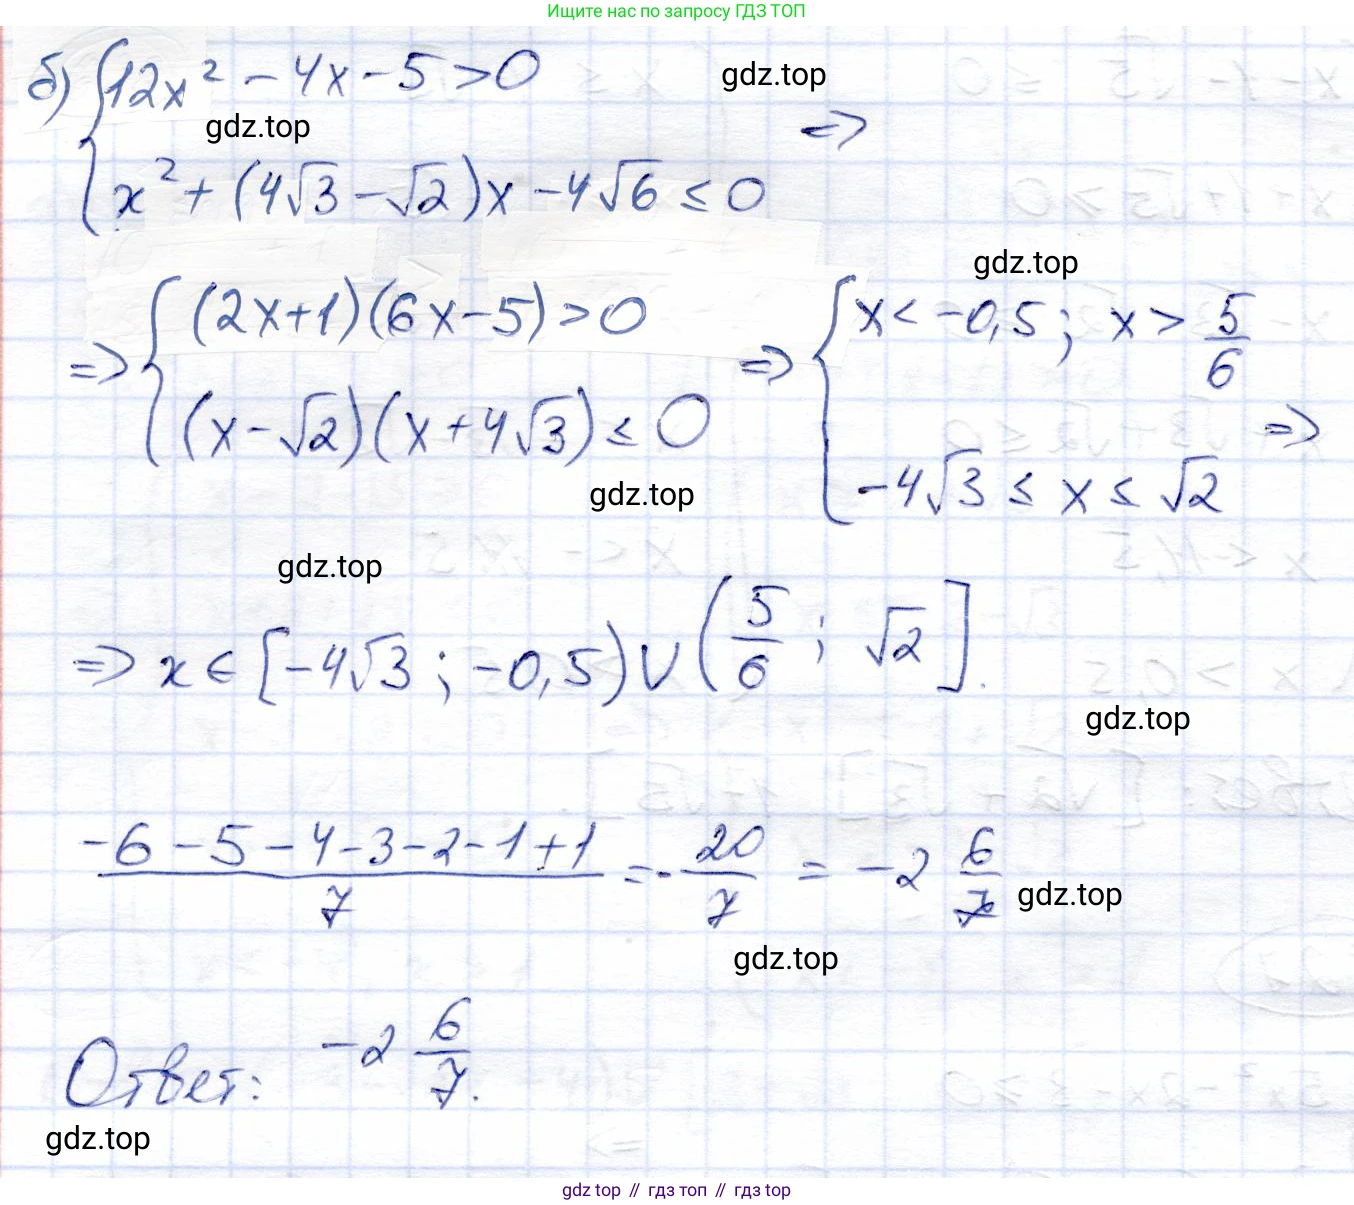 Ищите нас по запросу ГДЗ ТОП
б) { 12x² - 4x - 5 > 0
gdz.top
gdz.top
x² + (4√3 - √2)x - 4√6 ≤ 0 =>
gdz.top
=> { (2x+1)(6x-5) > 0
(x-√2)(x+4√3) ≤ 0
=> { x < -0,5; x > 5/6
-4√3 ≤ x ≤ √2 =>
gdz.top
gdz.top
=> x ∈ [-4√3; -0,5) ∪ (5/6; √2].
gdz.top
(-6-5-4-3-2-1+1)/7 = -20/7 = -2 6/7
gdz.top
gdz.top
Ответ: -2 6/7.
gdz.top
gdz top // гдз топ // гдз top